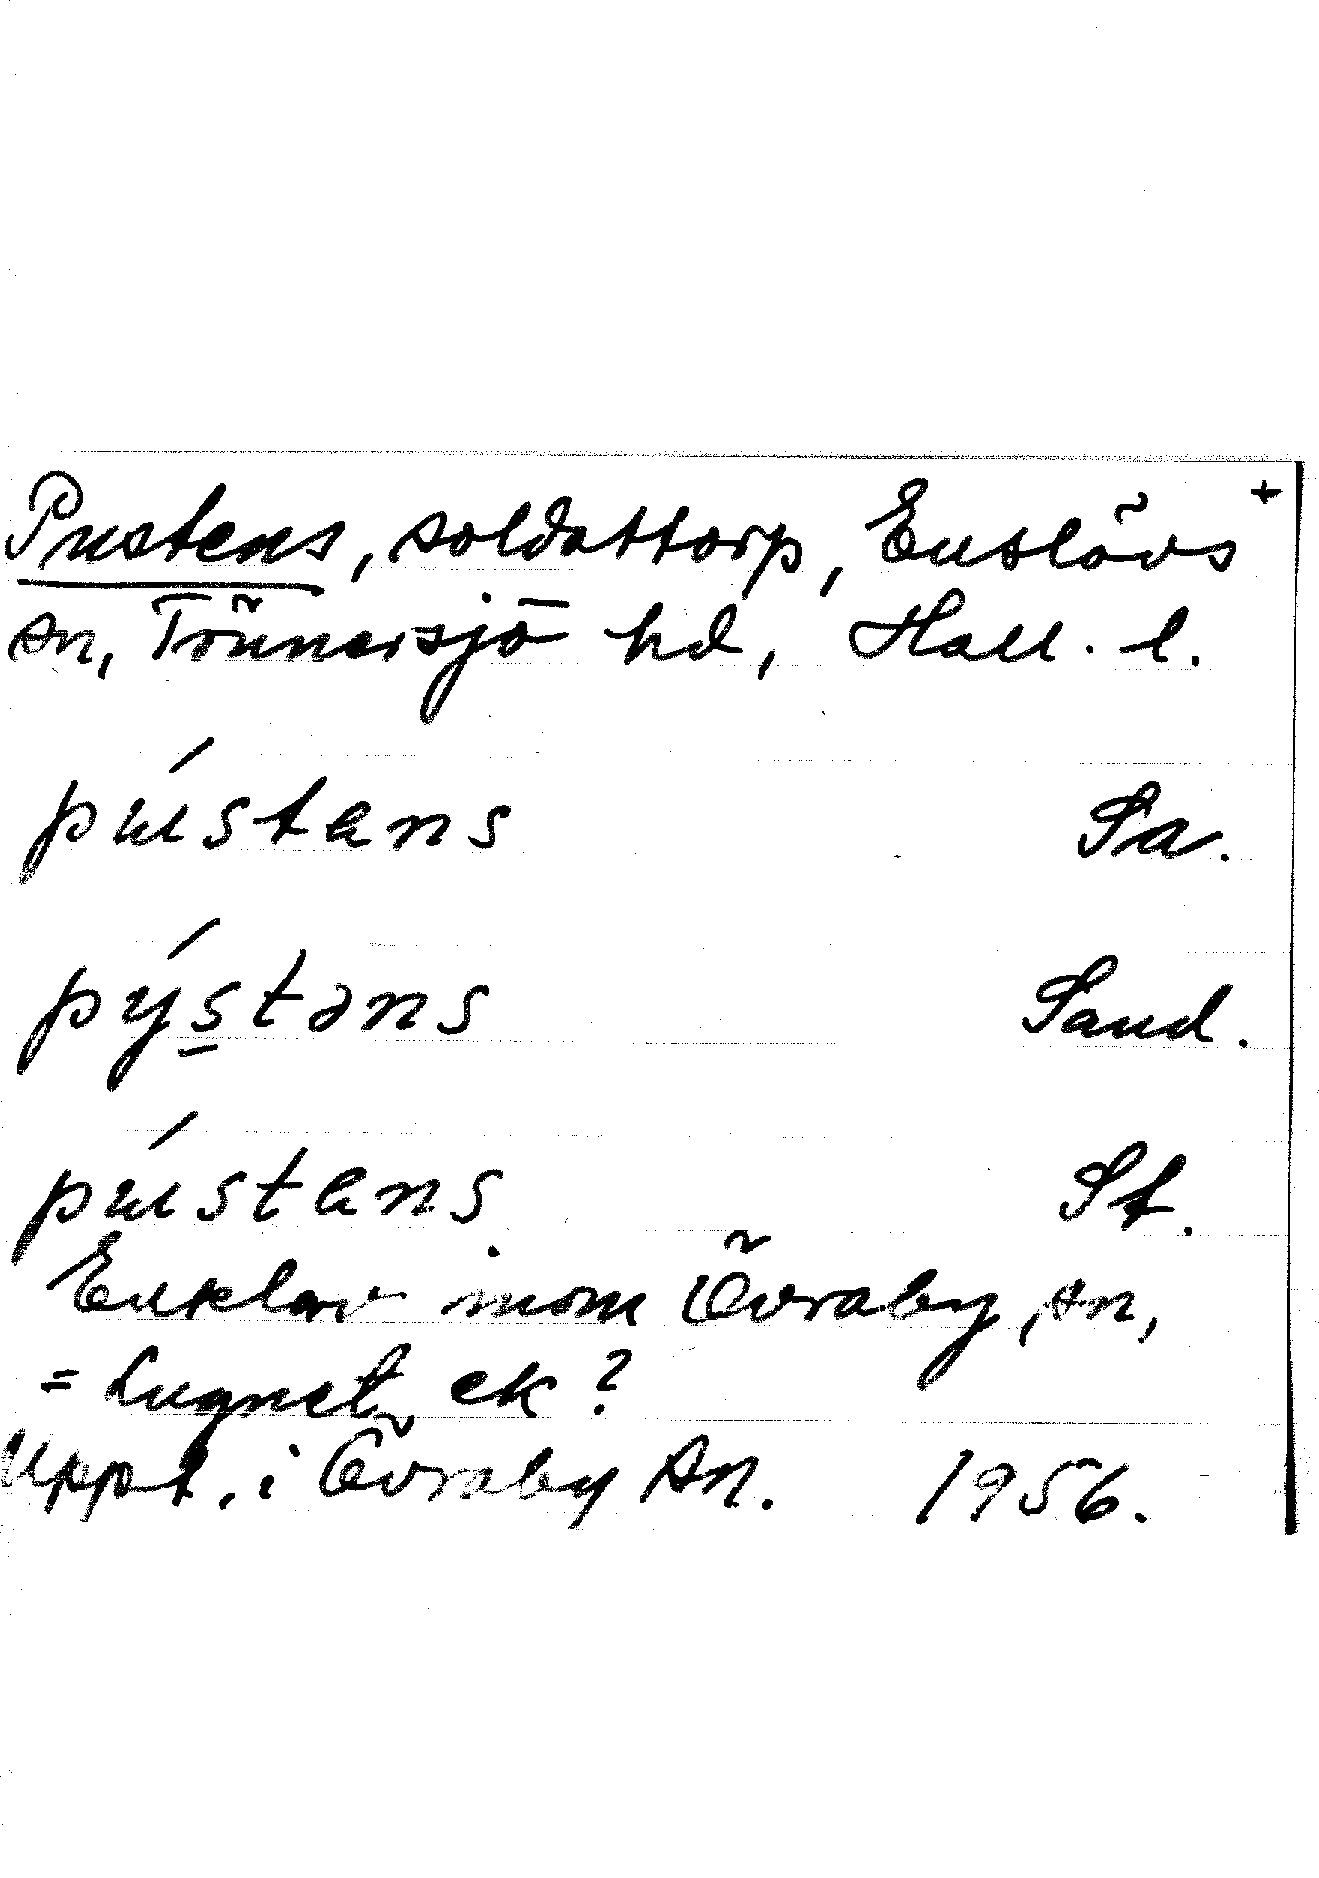 Pustens, soldattorp, Enslövs +
sn, Tönnersjö hd, Hall. l.
pústens Sa.
pýstəns Sand.
pústens St.
Enklav inom Övraby sn,
= Lugnet ek?
Uppt. i Övraby sn. 1956.